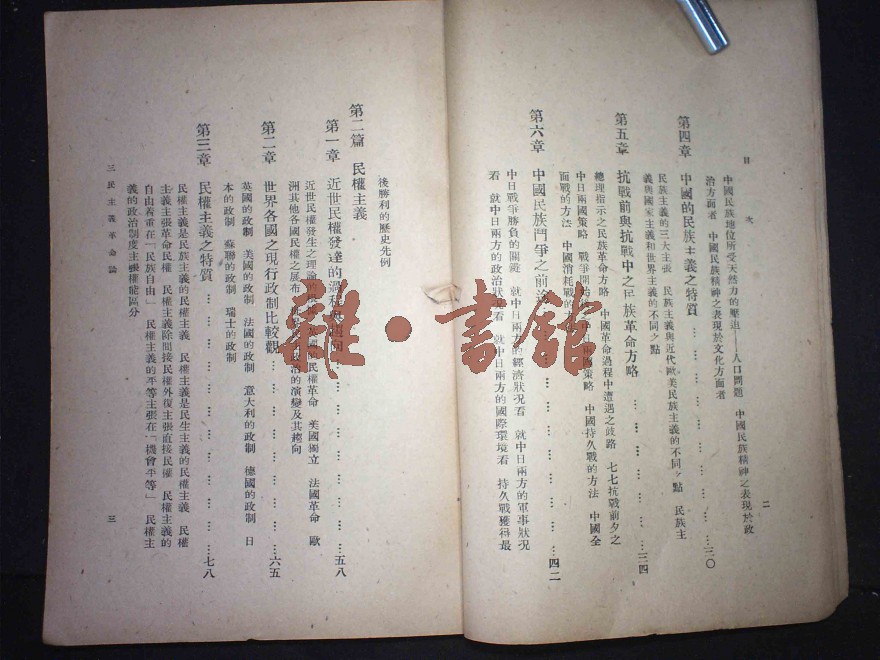 目次
二
中國民族地位所受天然力的壓迫——人口問題　中國民族精神之表現於政
治方面者　中國民族精神之表現於文化方面者
第四章　中國的民族主義之特質………三〇
民族主義的三大主張　民族主義與近代歐美民族主義的不同之點　民族主
義與國家主義和世界主義的不同之點
第五章　抗戰前與抗戰中之民族革命方略………三四
總理指示之民族革命方略　中國革命過程中遭遇之歧路　七七抗戰前夕之
中日兩國策略　戰爭開始後中日兩國策略　中國持久戰的方法　中國全
面戰的方法　中國消耗戰的方法
第六章　中國民族鬥爭之前途………四二
中日戰爭勝負的關鍵　就中日兩方的經濟狀況看　就中日兩方的軍事狀況
看　就中日兩方的政治狀況看　就中日兩方的國際環境看　持久戰獲得最
後勝利的歷史先例
第二篇　民權主義
第一章　近世民權發達的過程與趨向………五八
近世民權發生之理論的 英國的民權革命　美國獨立　法國革命　歐
洲其他各國民權之展布 政治的演變及其趨向
第二章　世界各國之現行政制比較觀………六五
英國的政制　美國的政制　法國的政制　意大利的政制　德國的政制　日
本的政制　蘇聯的政制　瑞士的政制
第三章　民權主義之特質………七八
民權主義是民族主義的民權主義　民權主義是民生主義的民權主義　民權
主義主張革命民權　民權主義除間接民權外復主張直接民權　民權主義的
自由着重在「民族自由」　民權主義的平等主張在「機會平等」　民權主
義的政治制度主張權能區分
三民主義革命論
三
雜·書館